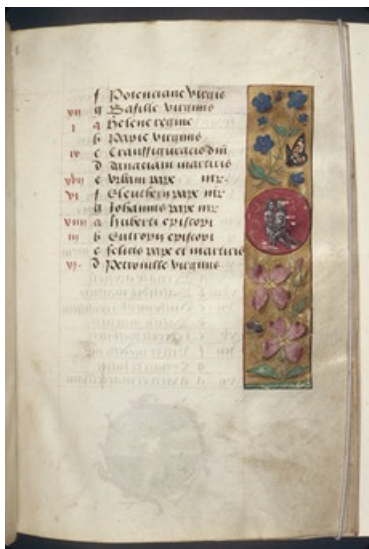 f Potenciane virgīs
xvii g Basille virginis
i a Helene regine
b Papie virginis
ix c Transfiguracio dn̄i
d Donaciani martiris
xvii e Urbani pape mr̄
vi f Eleutherii pape mr̄
g Johannis pape mr̄
a Huberti episcopi
iii b Eutropii episcopi
c felicis pape et martiris
xi d Petronille virginis